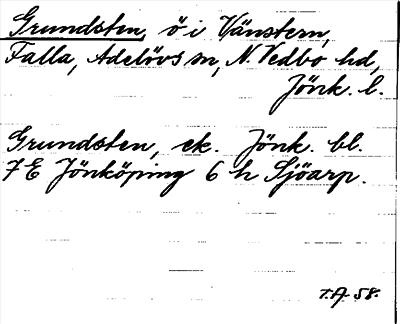 Grundsten, ö i Vänstern,
Falla, Adelövs sn, N. Vedbo hd,
Jönk. l.
Grundsten, ek. Jönk. bl.
7 E Jönköping 6 h Sjöarp.
T.A. 58.